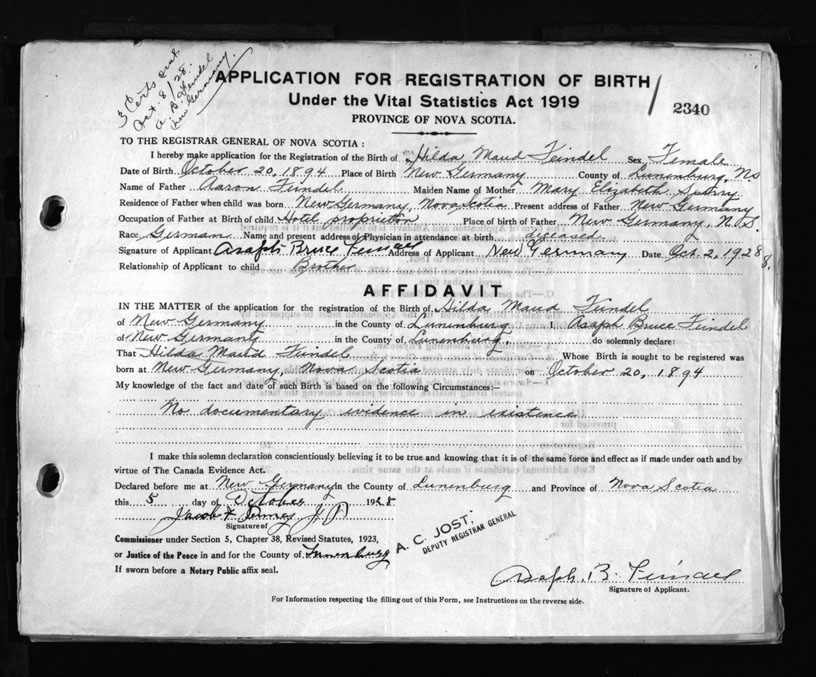 3 Certs sent
Oct. 8/28.
A. B. Feindel
New Germany.
APPLICATION FOR REGISTRATION OF BIRTH
Under the Vital Statistics Act 1919
PROVINCE OF NOVA SCOTIA.
2340
TO THE REGISTRAR GENERAL OF NOVA SCOTIA :
I hereby make application for the Registration of the Birth of Hilda Maud Feindel Sex Female
Date of Birth October 20, 1894 Place of Birth New Germany County of Lunenburg, NS
Name of Father Aaron Feindel Maiden Name of Mother Mary Elizabeth
Residence of Father when child was born New Germany, Nova Scotia Present address of Father New Germany
Occupation of Father at Birth of child Hotel proprietor Place of birth of Father New Germany, N.S.
Race German Name and present address of Physician in attendance at birth deceased
Signature of Applicant Asaph Bruce Feindel Address of Applicant New Germany Date Oct. 2, 1928
Relationship of Applicant to child Brother
AFFIDAVIT
IN THE MATTER of the application for the registration of the Birth of Hilda Maud Feindel
of New Germany in the County of Lunenburg I, Asaph Bruce Feindel
of New Germany in the County of Lunenburg, do solemnly declare:
That Hilda Maud Feindel Whose Birth is sought to be registered was
born at New Germany, Nova Scotia on October 20, 1894
My knowledge of the fact and date of such Birth is based on the following Circumstances:—
No documentary evidence in existence
I make this solemn declaration conscientiously believing it to be true and knowing that it is of the same force and effect as if made under oath and by
virtue of The Canada Evidence Act.
Declared before me at New Germany in the County of Lunenburg and Province of Nova Scotia
this 5 day of October 1928
Jacob F. J P
Signature of
A. C. JOST,
DEPUTY REGISTRAR GENERAL
Commissioner under Section 5, Chapter 38, Revised Statutes, 1923,
or Justice of the Peace in and for the County of Lunenburg
If sworn before a Notary Public affix seal.
Asaph. B. Feindel
Signature of Applicant.
For Information respecting the filling out of this Form, see Instructions on the reverse side.